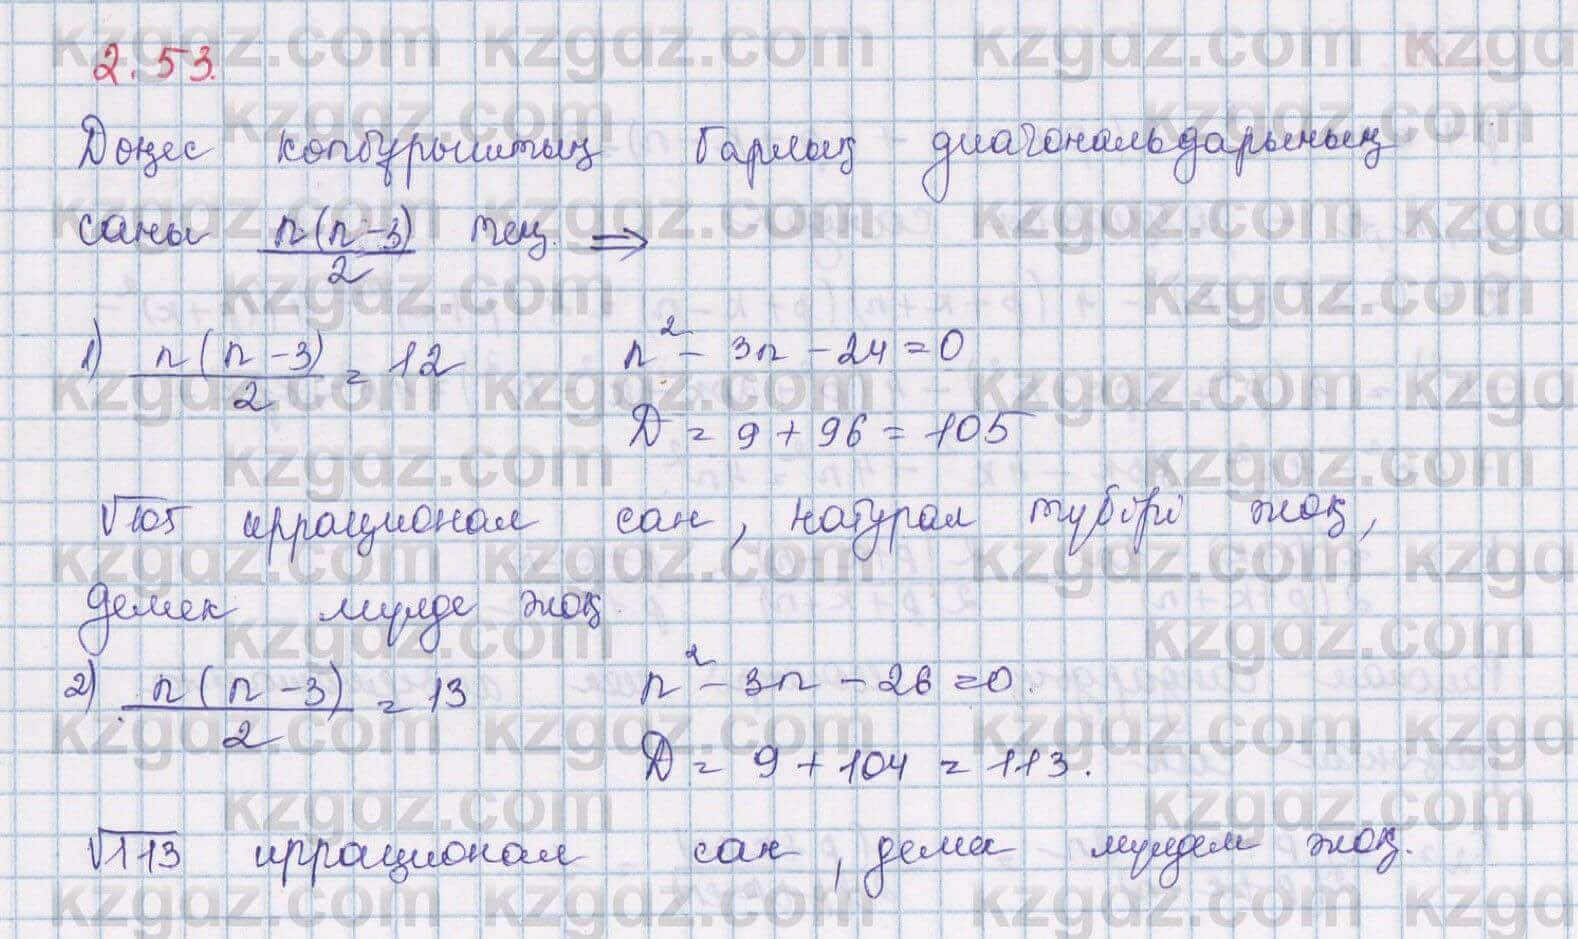 2.53.
Дөңес көпбұрыштың барлық диагональдарының
саны n(n-3)/2 тең. ⇒
1) n(n-3)/2 = 12 n² - 3n - 24 = 0
D = 9 + 96 = 105
√105 иррационал сан, натурал түбірі жоқ,
демек мүлде жоқ.
2) n(n-3)/2 = 13 n² - 3n - 26 = 0.
D = 9 + 104 = 113.
√113 иррационал сан, демек мүлдем жоқ.
kzgdz.com